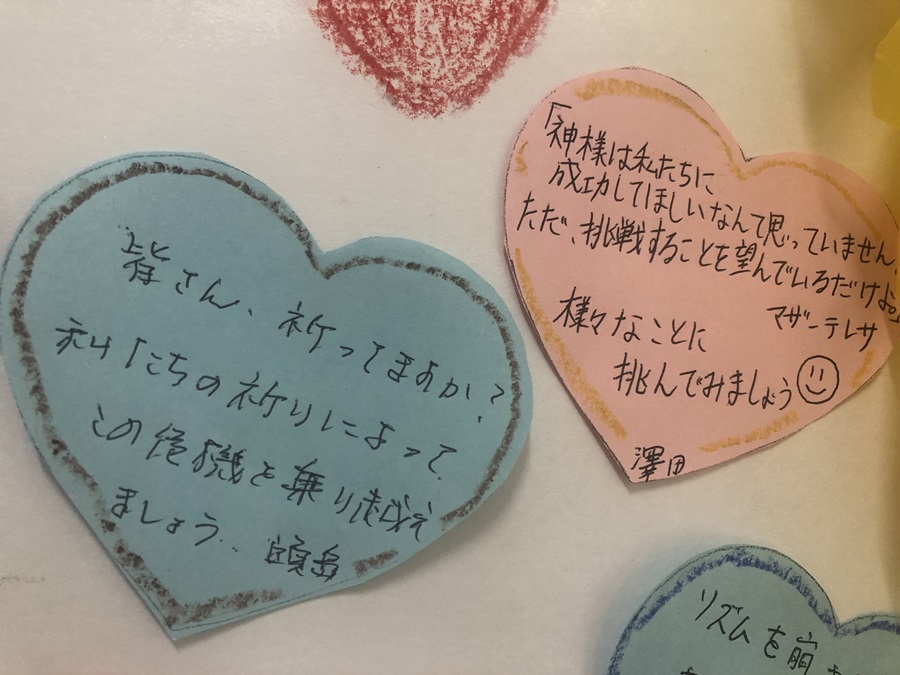 皆さん、祈ってますか?
私たちの祈りによって
この危機を乗り越え
ましょう..
「神様は私たちに
成功してほしいなんて思っていません、
ただ、挑戦することを望んでいるだけよ。」
マザーテレサ
様々なことに
挑んでみましょう
澤田
リズムを崩